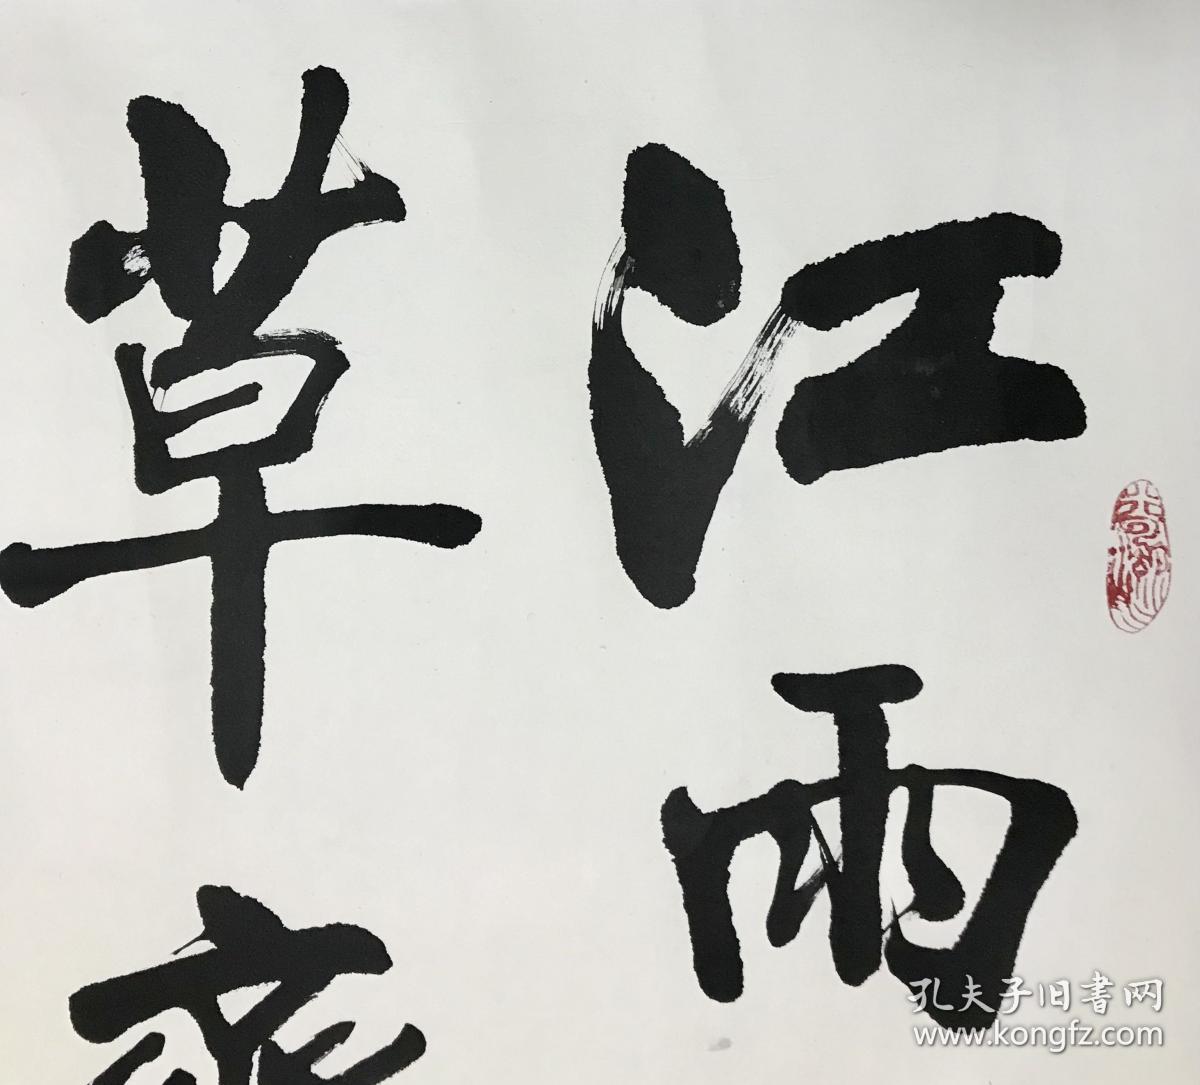 江雨
草齊
尚湖
孔夫子旧書网
www.kongfz.com